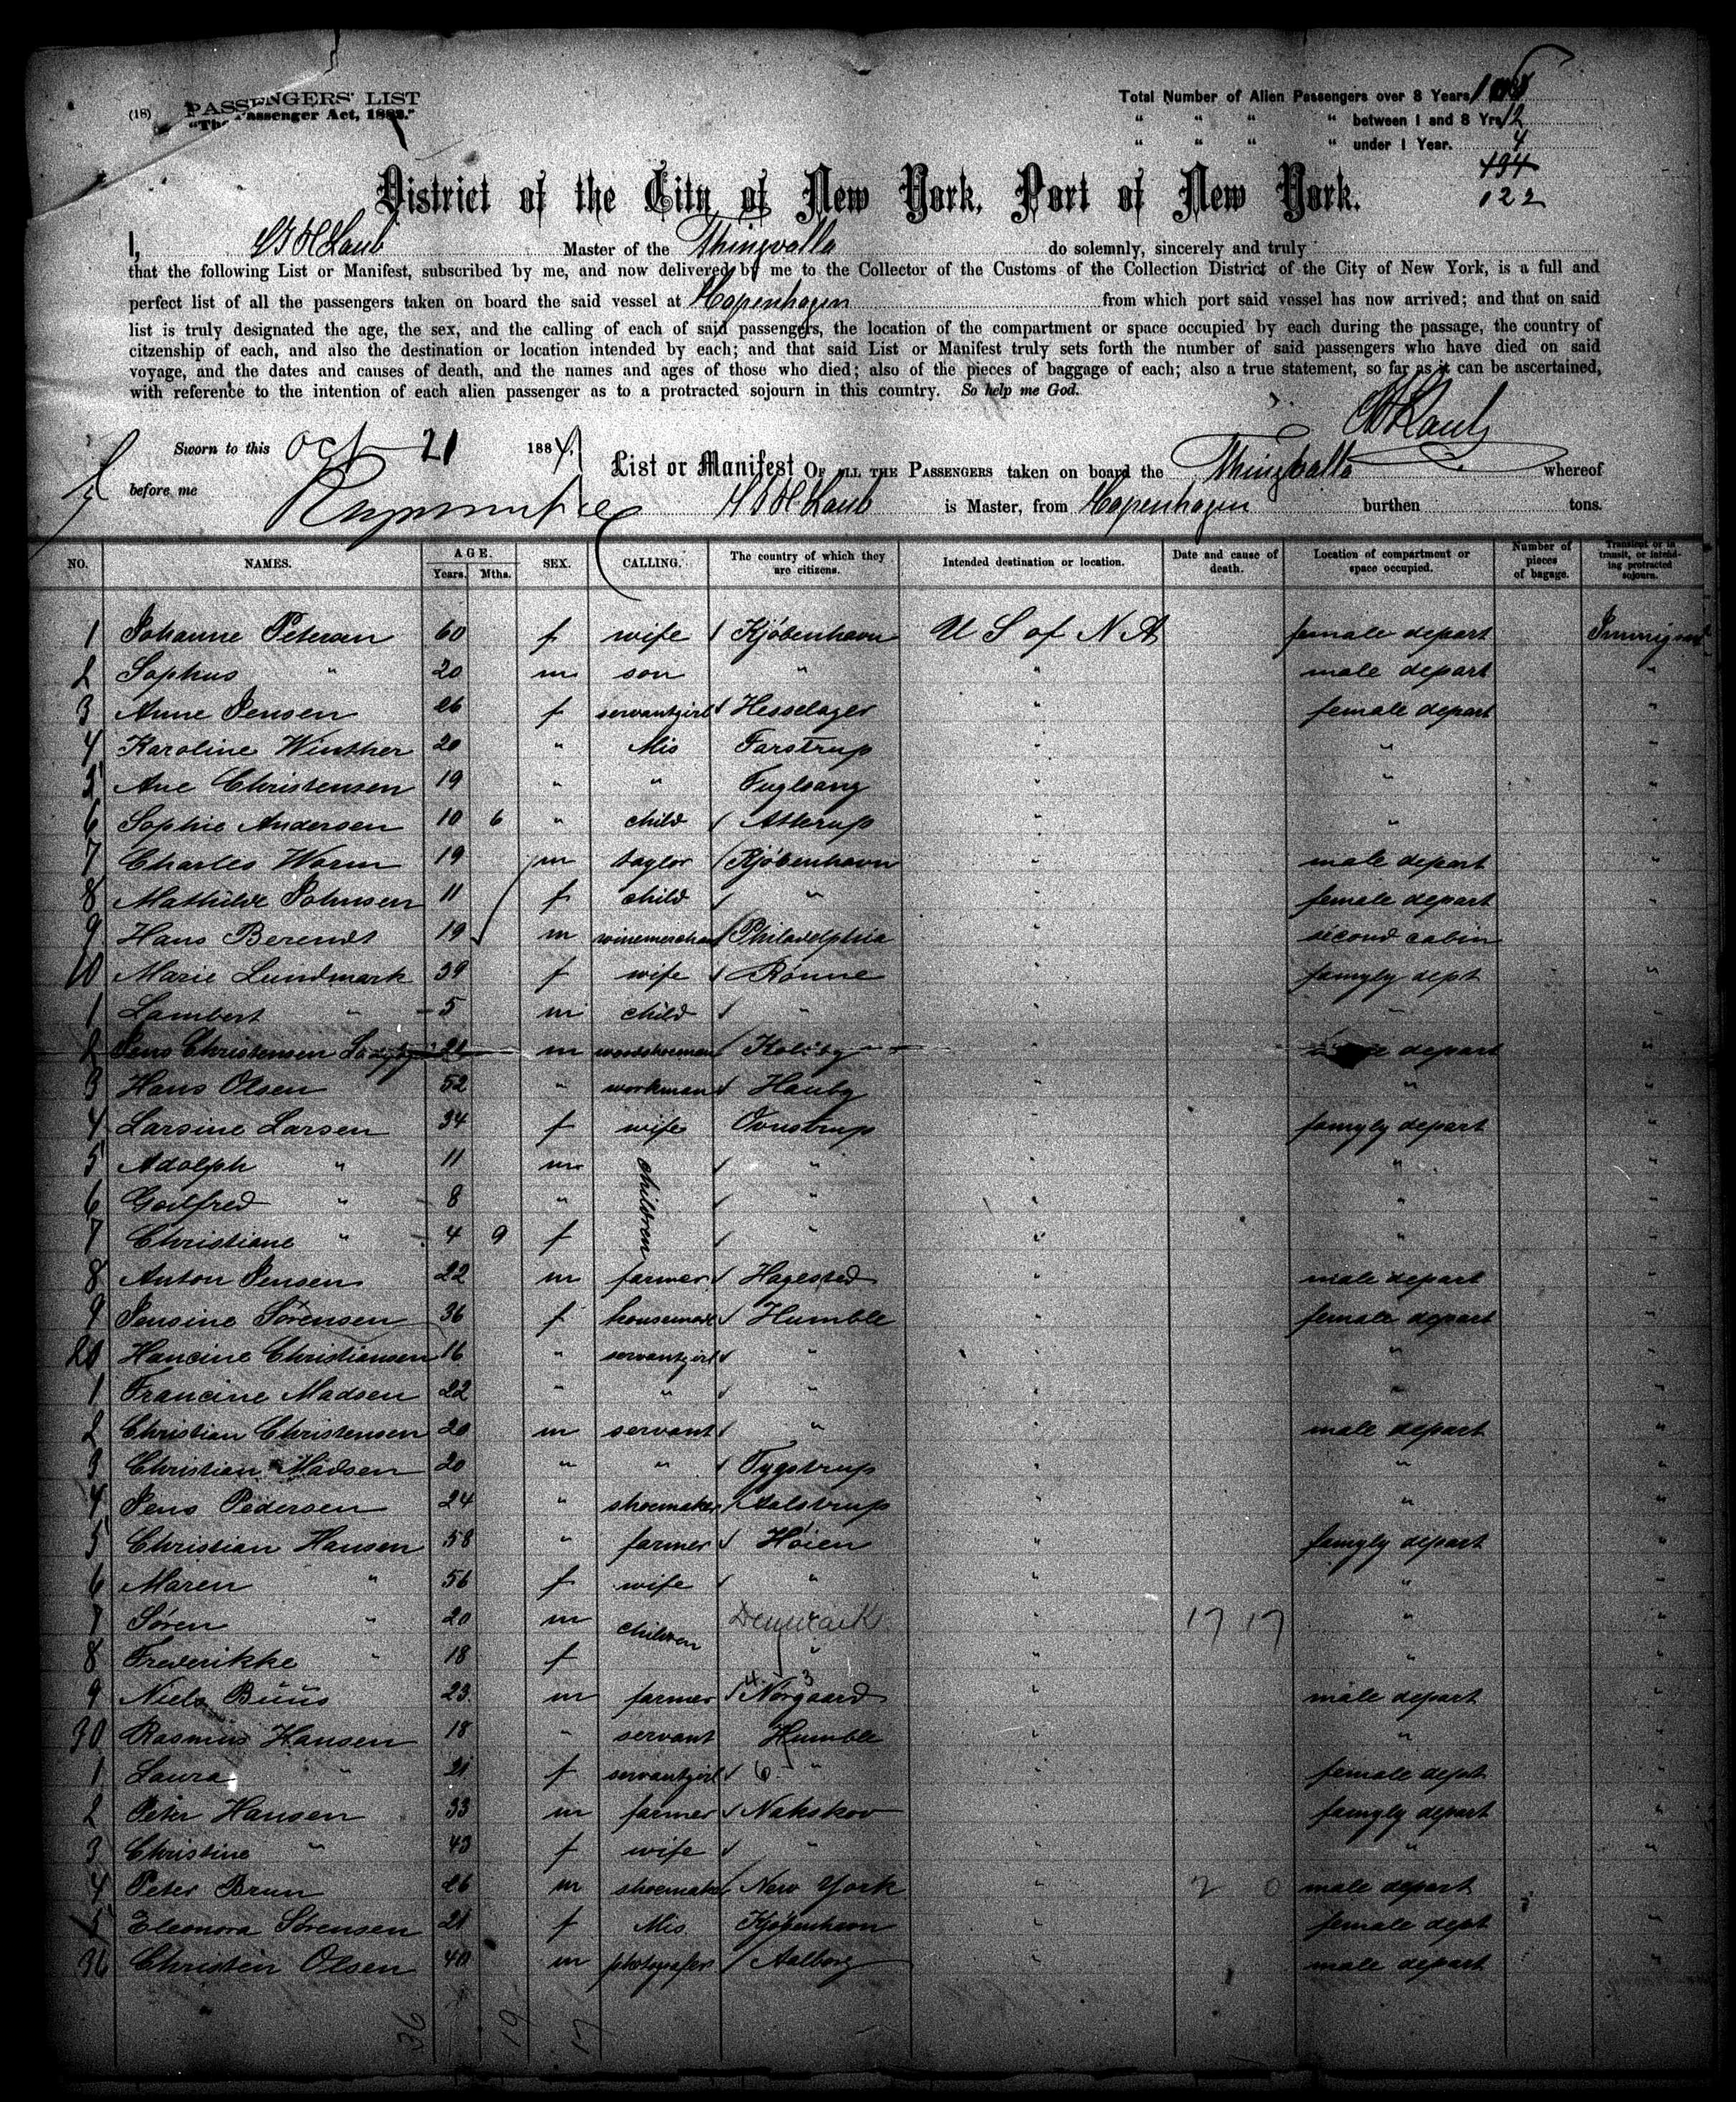 (18) PASSENGERS' LIST
"The Passenger Act, 1882."
Total Number of Alien Passengers over 8 Years
" " " " between 1 and 8 Yrs 12
" " " " under 1 Year. 4
194
122
District of the City of New York, Port of New York.
I, Laub Master of the Thingvalla do solemnly, sincerely and truly
that the following List or Manifest, subscribed by me, and now delivered by me to the Collector of the Customs of the Collection District of the City of New York, is a full and
perfect list of all the passengers taken on board the said vessel at Kopenhagen from which port said vessel has now arrived; and that on said
list is truly designated the age, the sex, and the calling of each of said passengers, the location of the compartment or space occupied by each during the passage, the country of
citzenship of each, and also the destination or location intended by each; and that said List or Manifest truly sets forth the number of said passengers who have died on said
voyage, and the dates and causes of death, and the names and ages of those who died; also of the pieces of baggage of each; also a true statement, so far as it can be ascertained,
with reference to the intention of each alien passenger as to a protracted sojourn in this country. So help me God.
Laub
Sworn to this Oct 21 1884
before me
List or Manifest OF ALL THE PASSENGERS taken on board the Thingvalla whereof
Laub is Master, from Kopenhagen burthen tons.
NO. NAMES. AGE. Years. Mths. SEX. CALLING. The country of which they are citizens. Intended destination or location. Date and cause of death. Location of compartment or space occupied. Number of pieces of bagage. Transient or in transit, or intending protracted sojourn.
1 Johanne Petersen 60 f wife Kjöbenhavn U S of N A female depart Immigrant
2 Sophus " 20 m son " " male depart "
3 Anne Jensen 26 f servantgirl Hesselager " female depart "
4 Karoline Winther 20 " Mis Farstrup " " "
5 Ane Christensen 19 " " Fuglsang " " "
6 Sophie Andersen 10 6 " child Atterup " " "
7 Charles Worm 19 m taylor Kjöbenhavn " male depart "
8 Mathilde Johnsen 11 f child " " female depart "
9 Hans Berendt 19 m winemerchan Philadelphia " second cabin
10 Marie Lundmark 39 f wife Rönne " famyly dept "
1 Lambert " 5 m child " " " "
2 Jens Christensen 21 m Kolby " depart "
3 Hans Olsen 52 " workman Hauby " " "
4 Larsine Larsen 34 f wife Ovnstrup " famyly depart "
5 Adolph " 11 m children " " " "
6 Godfred " 8 " " " " "
7 Christiane " 4 9 f " " " "
8 Anton Jensen 22 m farmer Hagested " male depart "
9 Jensine Sörensen 36 f housemaid Humble " female depart "
20 Hancine Christiansen 16 " servantgirl " " " "
1 Francine Madsen 22 " " " " " "
2 Christian Christensen 20 m servant " " male depart "
3 Christian Madsen 20 " " Tygstrup " " "
4 Jens Pedersen 24 " shoemaker Aalstrup " " "
5 Christian Hansen 58 " farmer Höien " famyly depart "
6 Maren " 56 f wife " " " "
7 Sören " 20 m children Denmark " 17 17 " "
8 Frederikke " 18 f " " " "
9 Niels Buus 23 m farmer 4 3 Nörgaard " male depart "
30 Rasmus Hansen 18 " servant Humble " " "
1 Laura " 21 f servantgirl 6 " " female dept "
2 Peter Hansen 33 m farmer Nakskov " famyly depart "
3 Christine " 43 f wife " " " "
4 Peter Brun 26 m shoemaker New York " 2 0 male depart "
5 Eleonora Sörensen 21 f Mis Kjöbenhavn " female dept "
36 Christen Olsen 40 m photografer Aalborg " male depart "
36 19 17